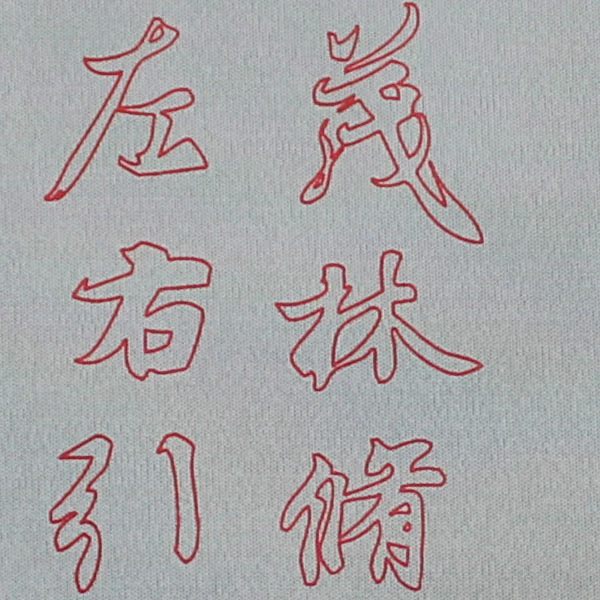 茂林脩
左右引